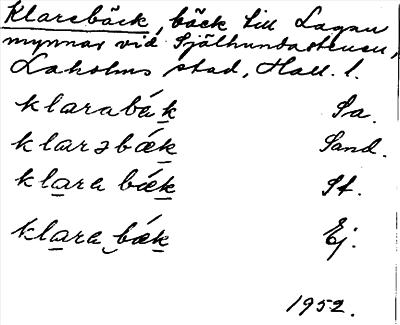 Klarebäck, bäck till Lagan
mynnar vid Själhundastenen,
Laholms stad, Hall. l.
klarabák Sa.
klarəbǽk Sand.
klara bǽk St.
klara bǽk Ej.
1952.